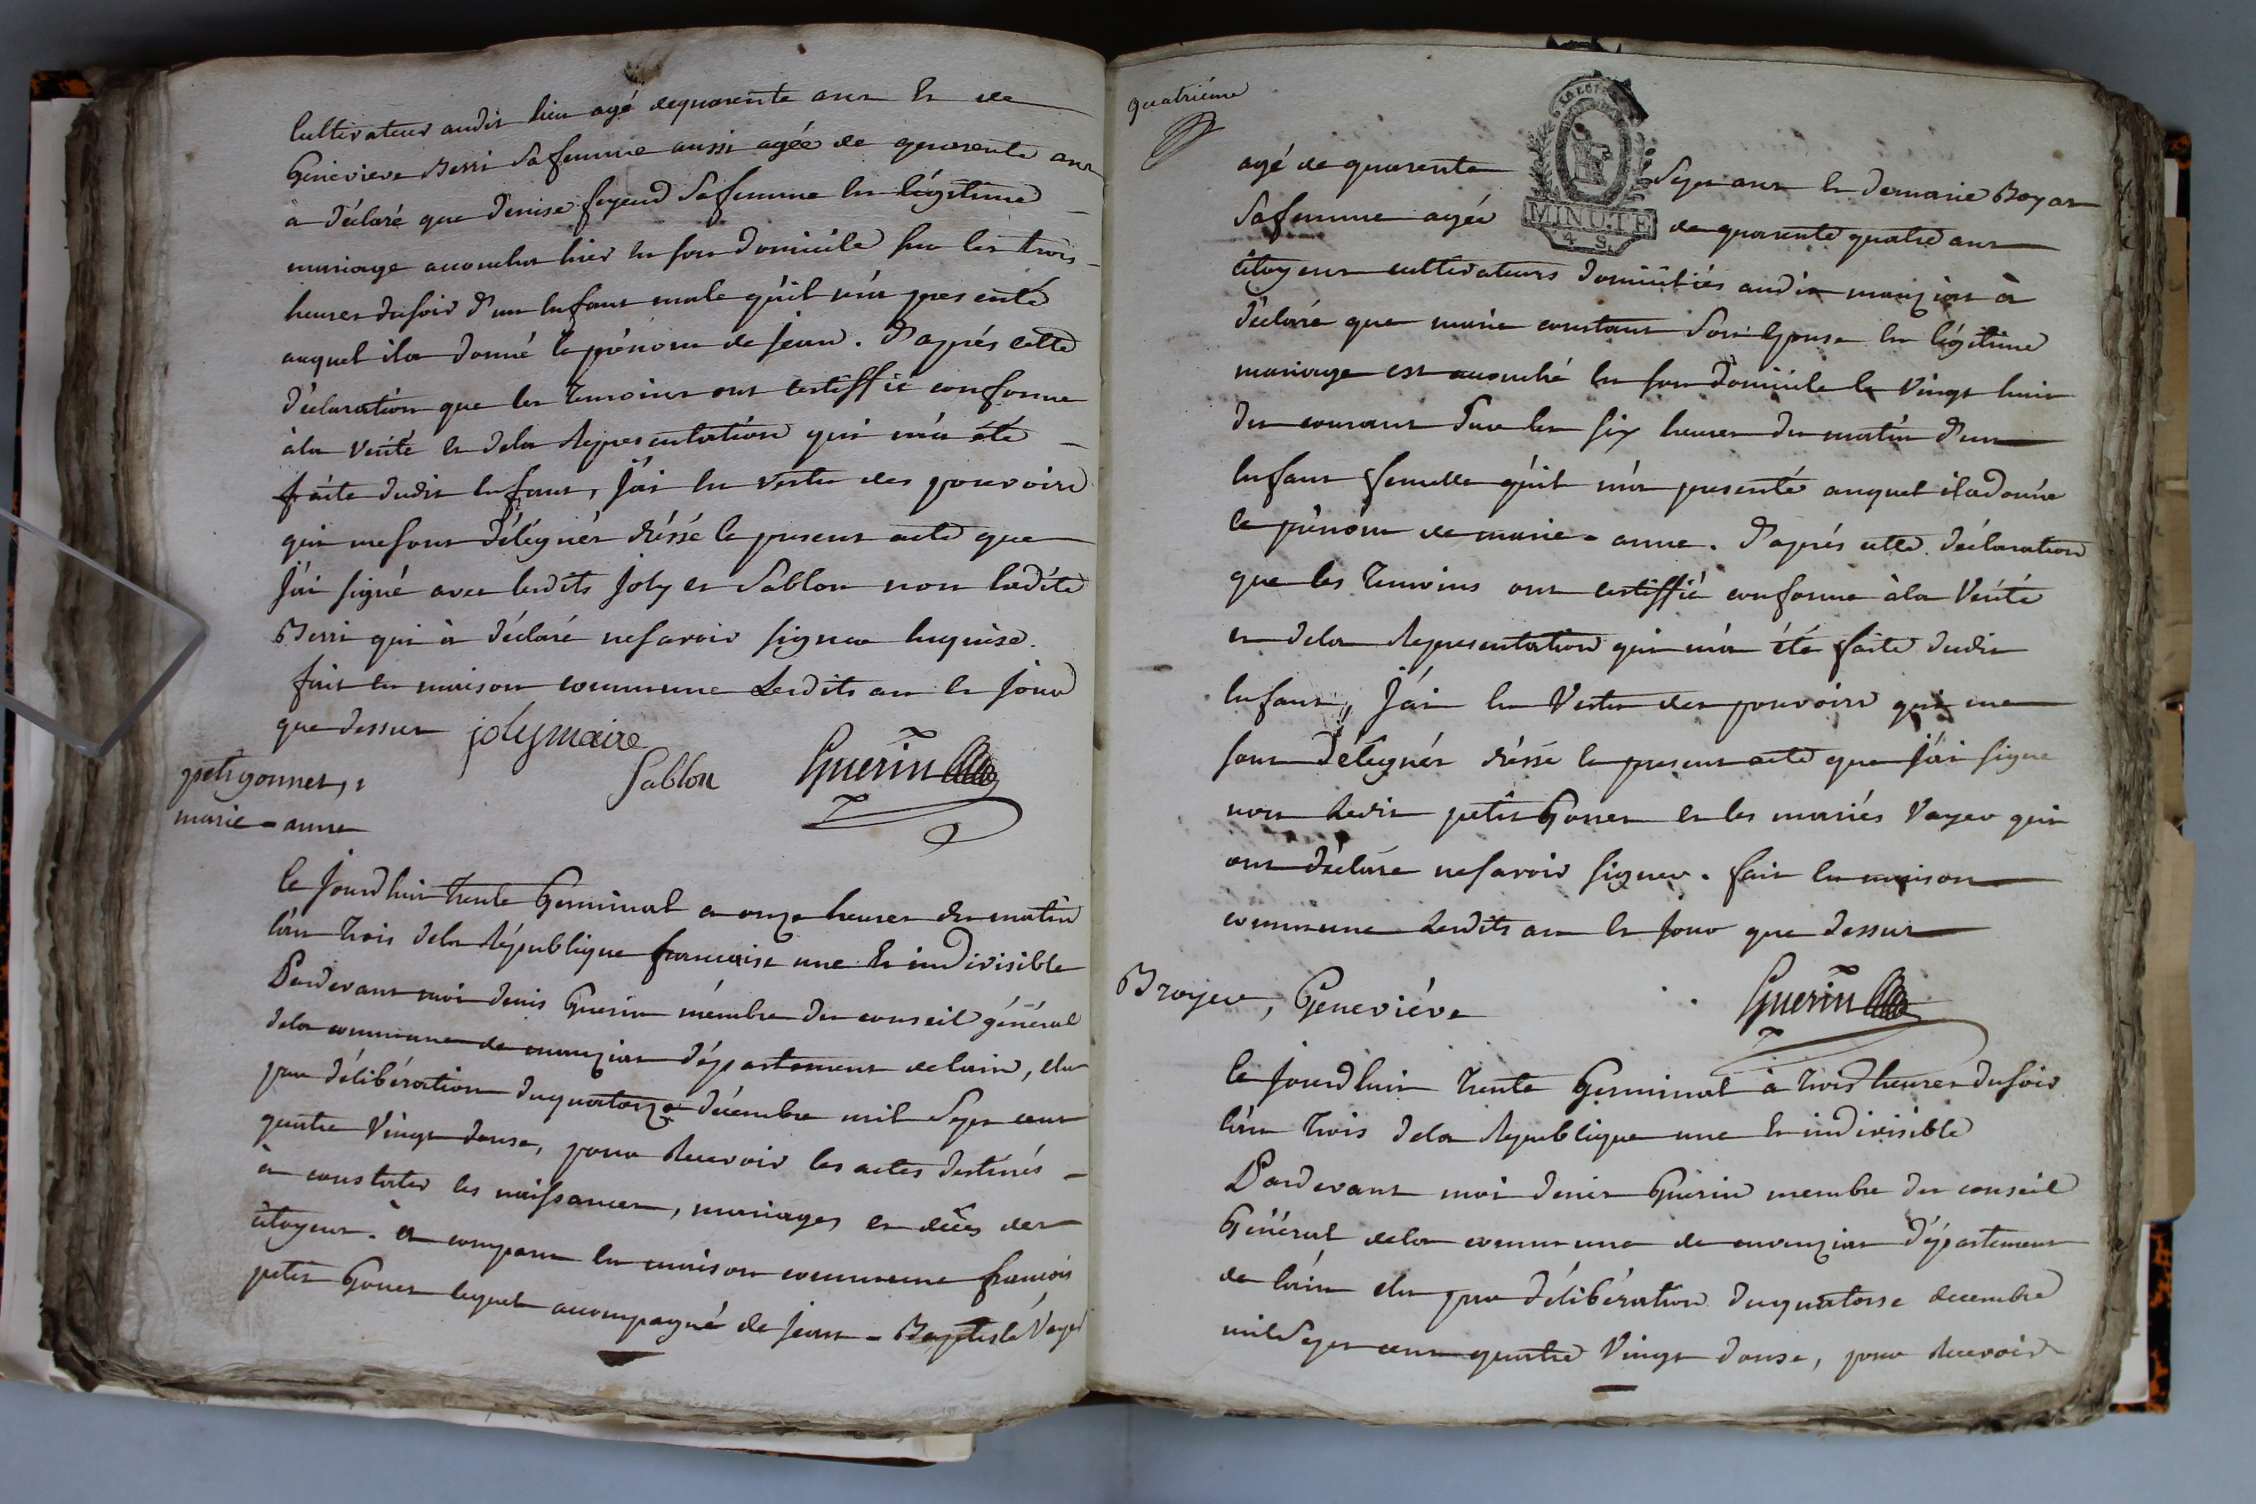 Cultivateur audit lieu agé dequarente ans et de
Genevieve Berri Safemme aussi agée de quarente ans
a déclaré que denise Safemme en légitime
mariage accouchat hier en son domicile sur les trois
heures dusoir d'un enfant male qu'il m'a presenté
auquel ila donné le prénom de jean. d'aprés cette
déclaration que les temoins ont certiffié conforme
àla verité et dela Representation qui m'a été
faite dudit enfant, j'ai en vertu des pouvoirs
qui mesont délégués dréssé le present acte que
j'ai signé avec lesdits joly et Sablon non ladite
Berri qui à déclaré nesavoir signer enquise.
fait en maison commune Lesdits an et jour
que dessus jolymaire
Sablon Guerin
petitgonnet,
marie-anne
Ce jourdhui trente Germinal a onze heures du matin
l'an trois dela République francaise une et indivisible
Pardevant moi denis Guerin mémbre du conseil général
dela commune de manziat département delain, élu
par délibération duquatorze décembre mil Sept cent
quatre vingt douse, pour Recevoir les actes destinés
à constater les naissances, mariages et décés des
citoyens. a comparu en maison commune francois
petit Gonet lequel accompagné de jean-Baptiste Voyer
quatriéme
agé de quarente Sept ans et demarie Boyat
Safemme agée de quarente quatre ans
MINUTE
4 S.
citoyens cultivateurs domiciliés audit manziat à
déclaré que marie constant Son Epouse en légitime
mariage est accouché en son domicile le vingt huit
du courant Sur les six heures du matin d'un
enfant femelle qu'il m'a presenté auquel iladonné
le prénom de marie-anne. d'aprés cette déclaration
que les temoins ont certiffié conforme àla Vérité
et dela Representation qui m'a été faite dudit
enfant, j'ai en Vertu des pouvoirs qui me
sont délégués dréssé le present acte que j'ai signe
non Ledit petit Gonet et les mariés Voyer qui
ont déclaré nesavoir signer. fait en maison
commune Lesdits an et jour que dessus
Broyer, Geneviéve
Guerin
Ce jourdhui trente Germinal à trois heures dusoir
l'an trois dela Republique une et indivisible
Pardevant moi denis Guerin membre du conseil
Général dela commune de manziat département
de l'ain élu par délibération duquatorse decembre
mil Sept cent quatre vingt douse, pour Recevoir